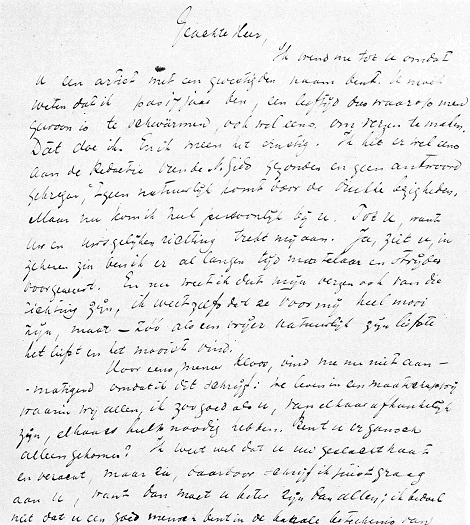 Geachte Heer,
Ik wend me tot u omdat
u een artist met een gevestigden naam bent. U moet
weten dat ik pas 17 jaar ben, een leeftijd die waarop men
gewoon is te schwärmen, ook wel eens om verzen te maken.
Dàt doe ik. En ik meen het ernstig. Ik heb er wel eens
aan de Redactie van de N. Gids gezonden en geen antwoord
gekregen, 't geen natuurlijk komt door de drukke bezigheden.
Maar nu kom ik heel persoonlijk bij u. Tot u, want
uw en richting trekt mij aan. Ja, ziet u, in
zekeren zin ben ik er al langen tijd martelaar en strijder
voor geweest. En nu weet ik dat mijn verzen ook van die
richting zijn, ik weet zelfs dat ze voor mij heel mooi
zijn, maar – zóó als een vrijer natuurlijk zijn liefste
het liefst en het mooist vind.
Hoor eens, meneer Kloos, vind me nu niet aan-
-matigend omdat ik dit schrijf: we leven in een maatschappij
waarin wij allen, ik zoo goed als u, van elkaar afhankelijk
zijn, elkaars hulp noodig hebben. Bent u er gansch
alleen gekomen? Ik weet wel dat u uw geslacht haat
en veracht, maar en, daardoor schrijf ik juist graag
aan u, want dan moet u beter zijn dan allen; ik bedoel
niet dat u een goed mensch bent in de beteekenis van